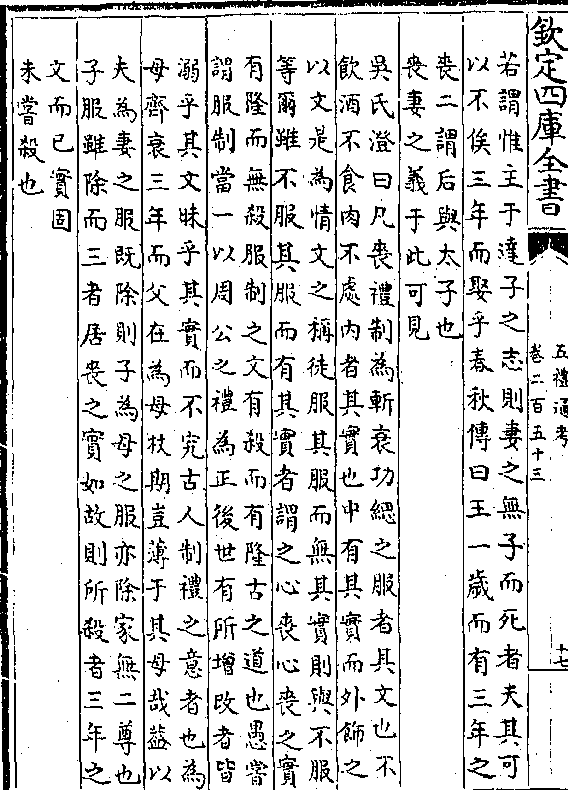 欽定四庫全書
五禮通考
卷二百五十三
十七
若謂惟主于達子之志則妻之無子而死者夫其可
以不俟三年而娶乎春秋傳曰王一歲而有三年之
喪二謂后與太子也
喪妻之義于此可見
吳氏澄曰凡喪禮制為斬衰功緦之服者其文也不
飲酒不食肉不處內者其實也中有其實而外飾之
以文是為情文之稱徒服其服而無其實則與不服
等爾雖不服其服而有其實者謂之心喪心喪之實
有隆而無殺服制之文有殺而有隆古之道也愚嘗
謂服制當一以周公之禮為正後世有所增改者皆
溺乎其文昧乎其實而不究古人制禮之意者也為
母齊衰三年而父在為母杖期豈薄于其母哉葢以
夫為妻之服既除則子為母之服亦除家無二尊也
子服雖除而三者居喪之實如故則所殺者三年之
文而已實固
未嘗殺也